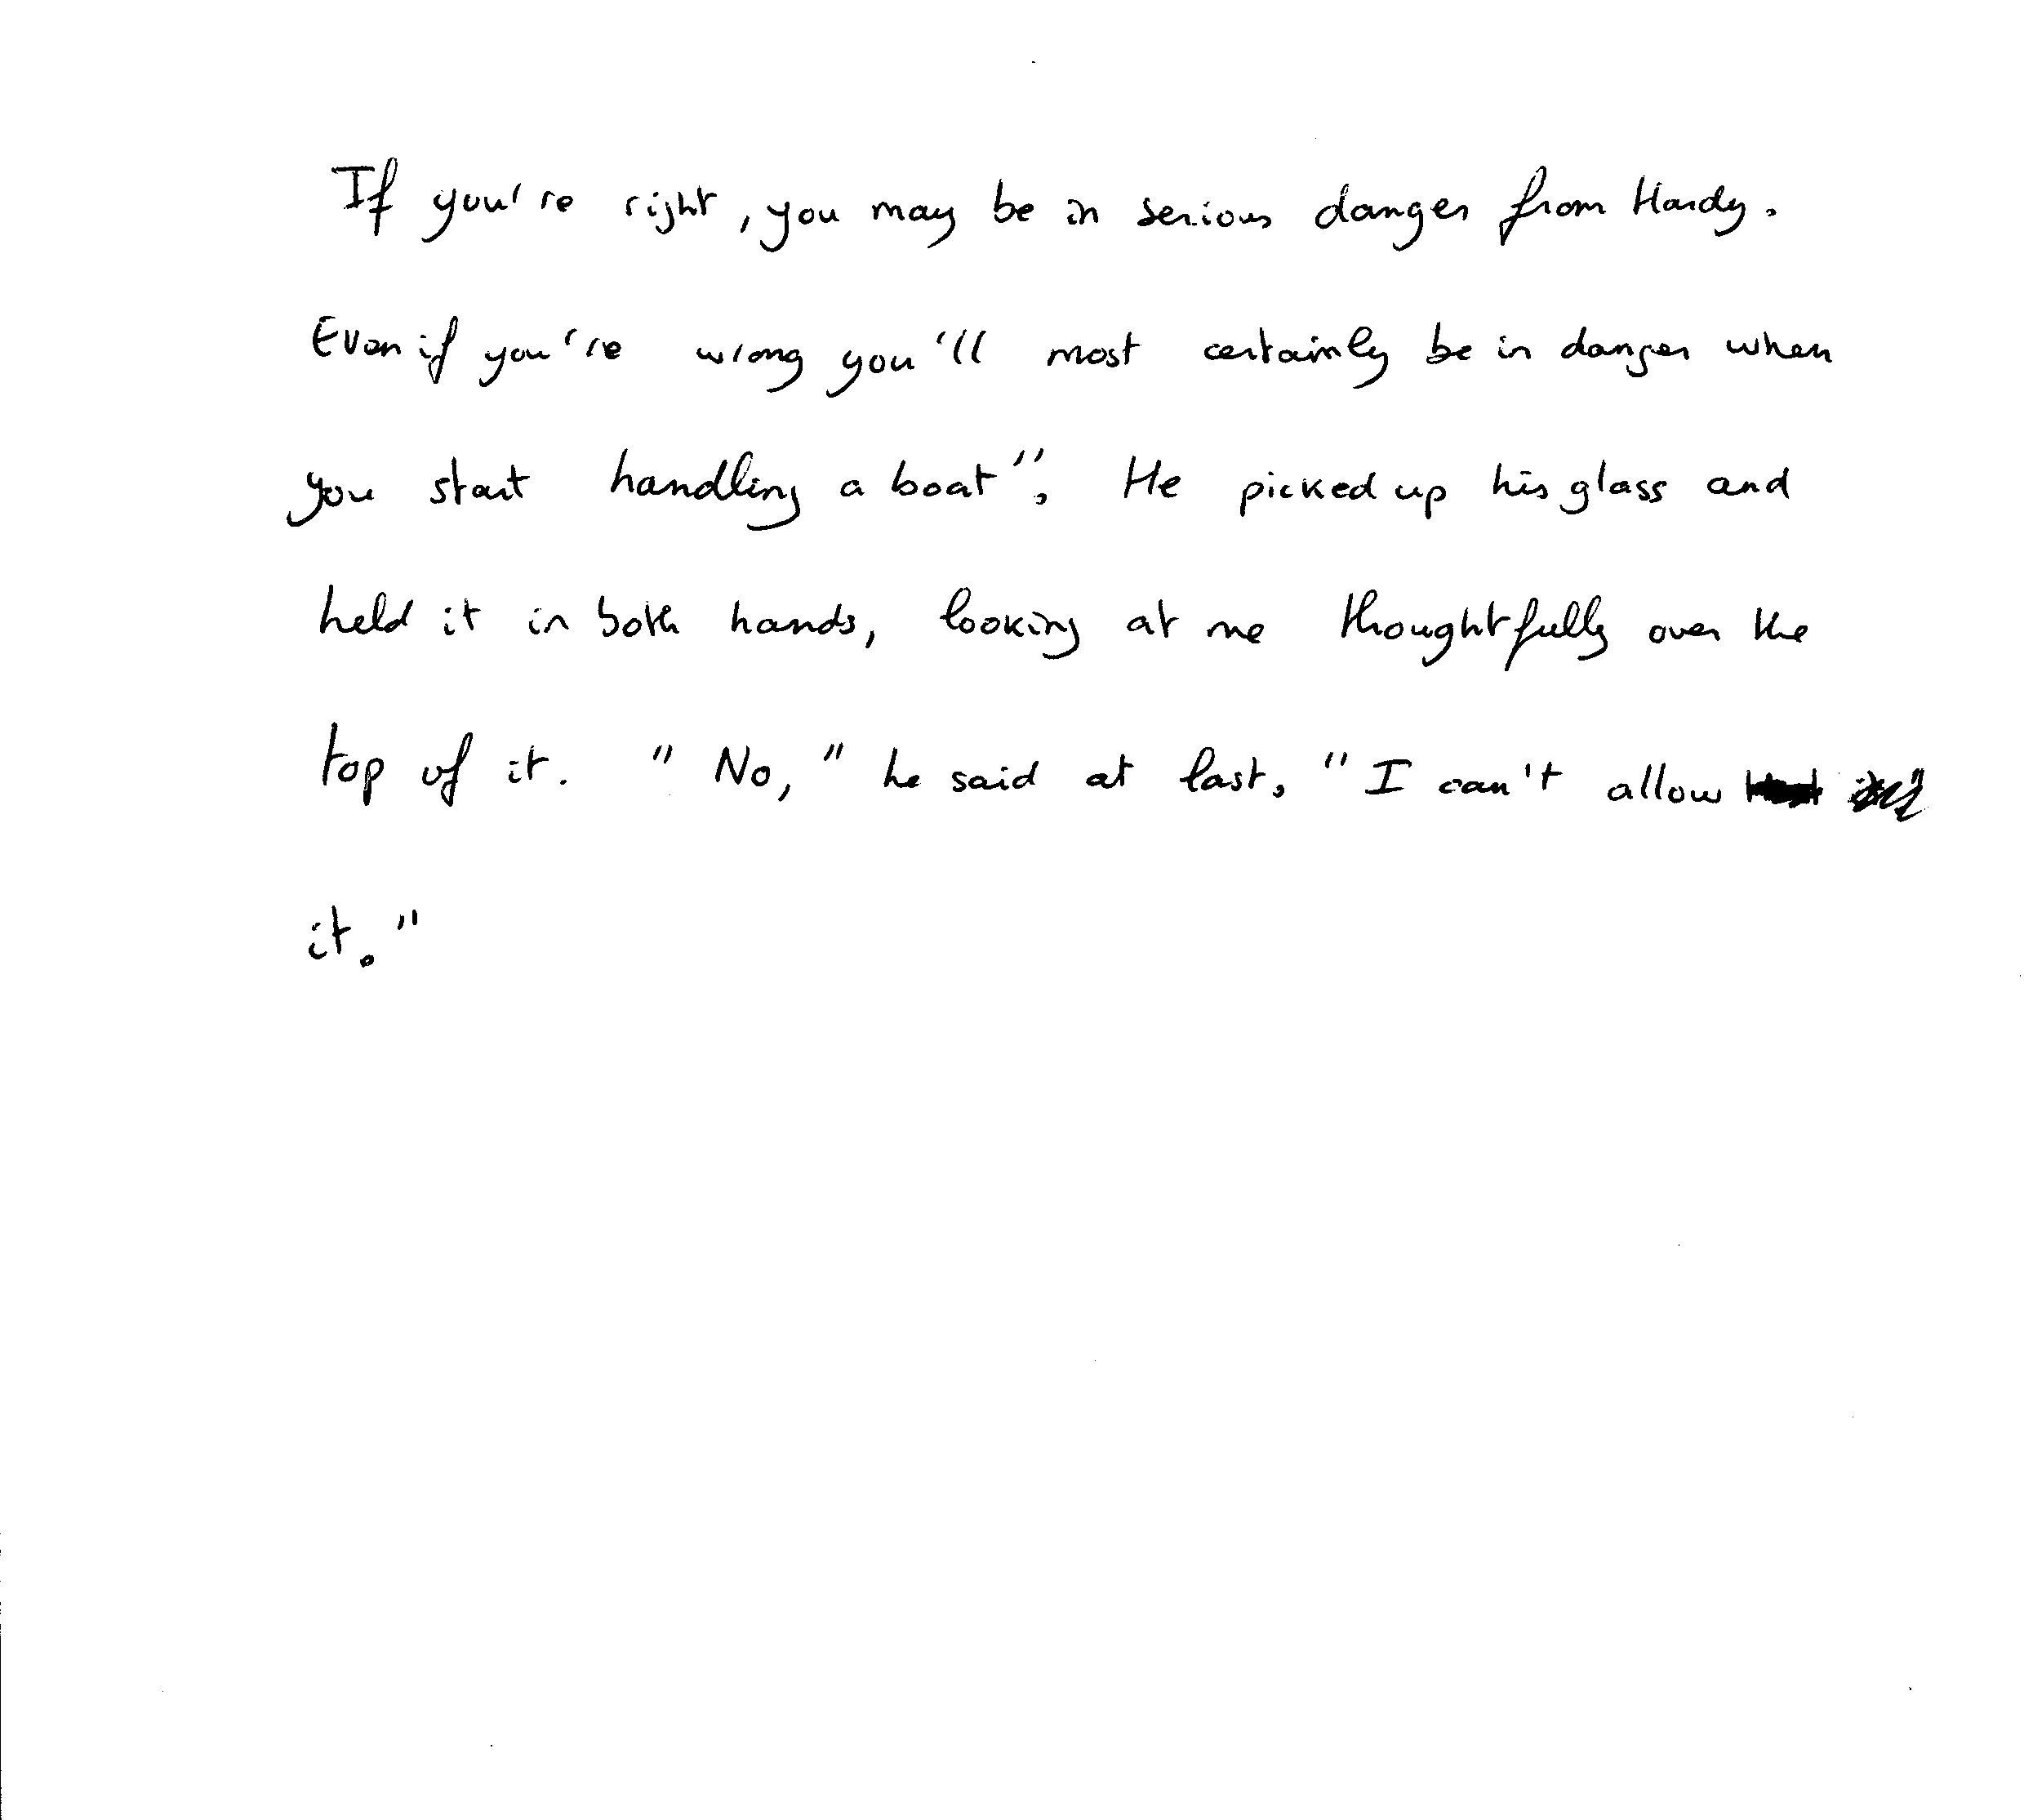 If you're right, you may be in serious danger from Hardy.
Even if you're wrong you'll most certainly be in danger when
you start handling a boat". He picked up his glass and
held it in both hands, looking at me thoughtfully over the
top of it. "No," he said at last. "I can't allow
it."